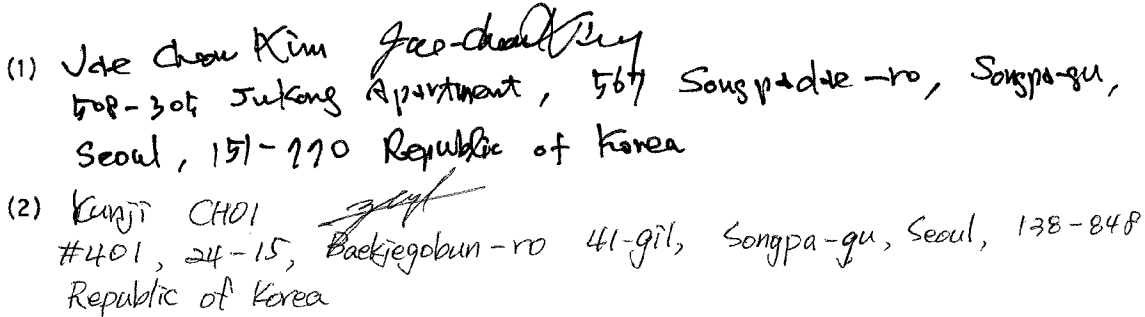 (1) Jae Cheon Kim Jae-cheon Kim
508-305 Jukong Apartment, 567 Songpadae-ro, Songpa-gu,
Seoul, 151-770 Republic of Korea
(2) Kunji CHOI
#401, 24-15, Baekjegobun-ro 41-gil, Songpa-gu, Seoul, 138-848
Republic of Korea